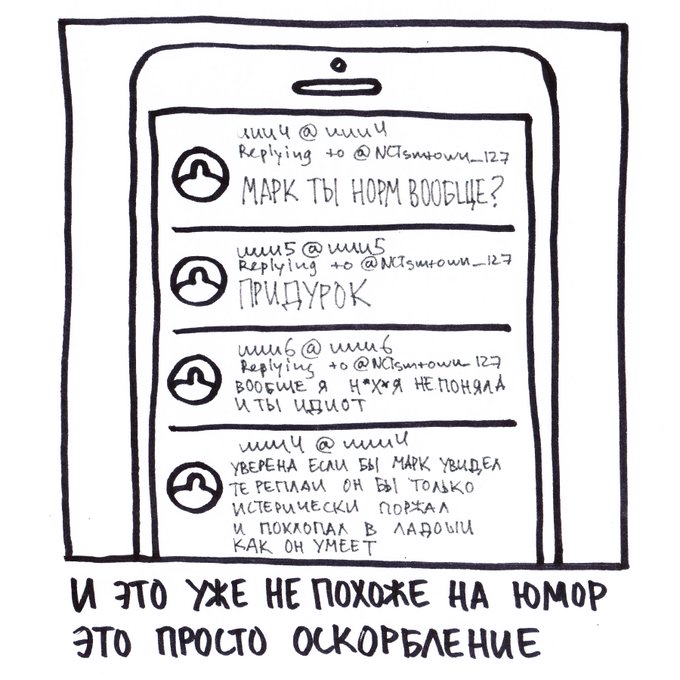 шш4 @ шшш4
Replying to @NCTsmtown_127
МАРК ТЫ НОРМ ВООБЩЕ?
шшш5 @ шшш5
Replying to @NCTsmtown_127
ПРИДУРОК
шшш6 @ шшш6
Replying to @NCTsmtown_127
ВООБЩЕ Я Н*Х*Я НЕ ПОНЯЛА
И ТЫ ИДИОТ
шшш4 @ шшш4
УВЕРЕНА ЕСЛИ БЫ МАРК УВИДЕЛ
ТЕ РЕПЛАИ ОН БЫ ТОЛЬКО
ИСТЕРИЧЕСКИ ПОРЖАЛ
И ПОХЛОПАЛ В ЛАДОШИ
КАК ОН УМЕЕТ
И ЭТО УЖЕ НЕ ПОХОЖЕ НА ЮМОР
ЭТО ПРОСТО ОСКОРБЛЕНИЕ